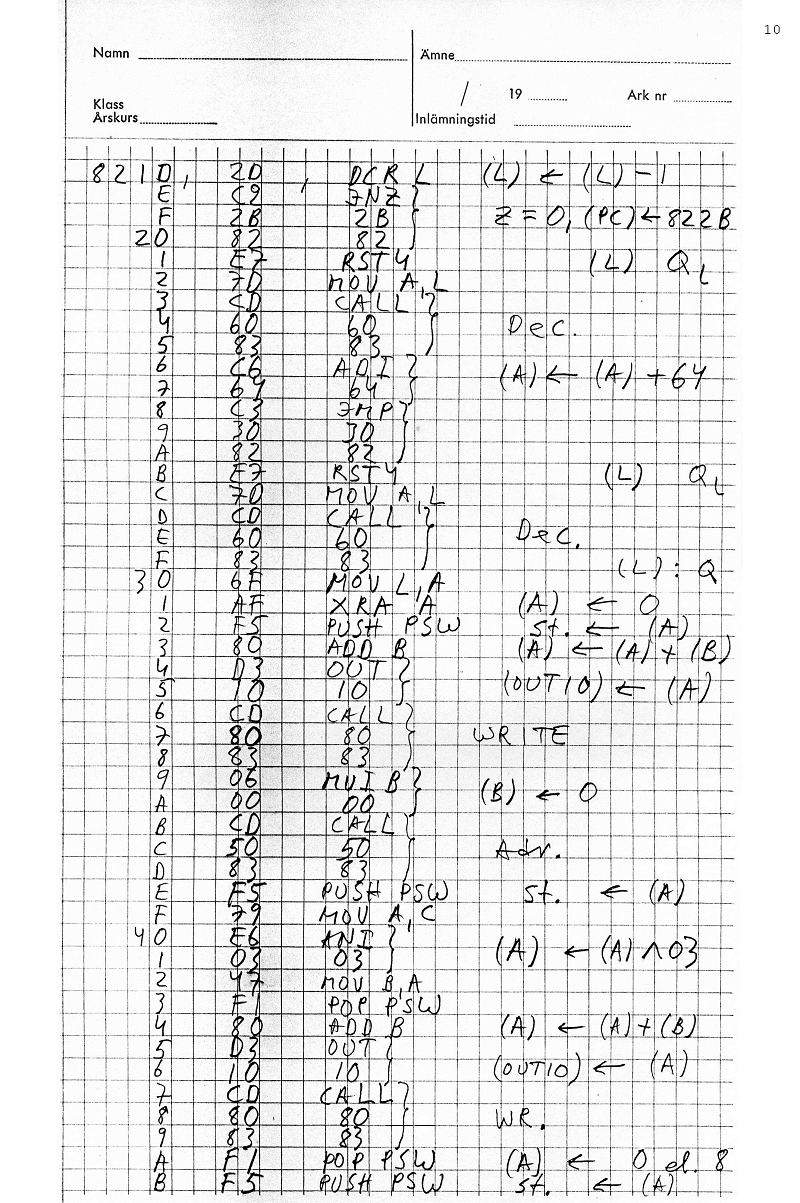 10
Namn Ämne
/ 19 Ark nr
Klass
Årskurs Inlämningstid
821D, 2D , DCR L (L) ← (L) -1
E C2 JNZ }
F 2B 2B } Z = 0, (PC) ← 822B
20 82 82 }
1 E7 RST4 (L) QL
2 7D MOV A,L
3 CD CALL }
4 60 60 } Dec.
5 83 83 }
6 C6 ADI } (A) ← (A) +64
7 64 64 }
8 C3 JMP }
9 30 30 }
A 82 82 }
B E7 RST4 (L) QL
C 7D MOV A,L
D CD CALL }
E 60 60 } Dec.
F 83 83 } (L) : Q
30 6F MOV L,A
1 AF XRA A (A) ← 0
2 F5 PUSH PSW st. ← (A)
3 80 ADD B (A) ← (A) + (B)
4 D3 OUT }
5 10 10 } (OUT10) ← (A)
6 CD CALL }
7 80 80 } WRITE
8 83 83 }
9 06 MVI B } (B) ← 0
A 00 00 }
B CD CALL }
C 50 50 } Adr.
D 83 83 }
E F5 PUSH PSW st. ← (A)
F 79 MOV A,C
40 E6 ANI } (A) ← (A) ∧ 03
1 03 03 }
2 47 MOV B,A
3 F1 POP PSW
4 80 ADD B (A) ← (A) + (B)
5 D3 OUT }
6 10 10 } (OUT10) ← (A)
7 CD CALL }
8 80 80 } WR.
9 83 83 }
A F1 POP PSW (A) ← 0 el. 8
B F5 PUSH PSW st. ← (A)